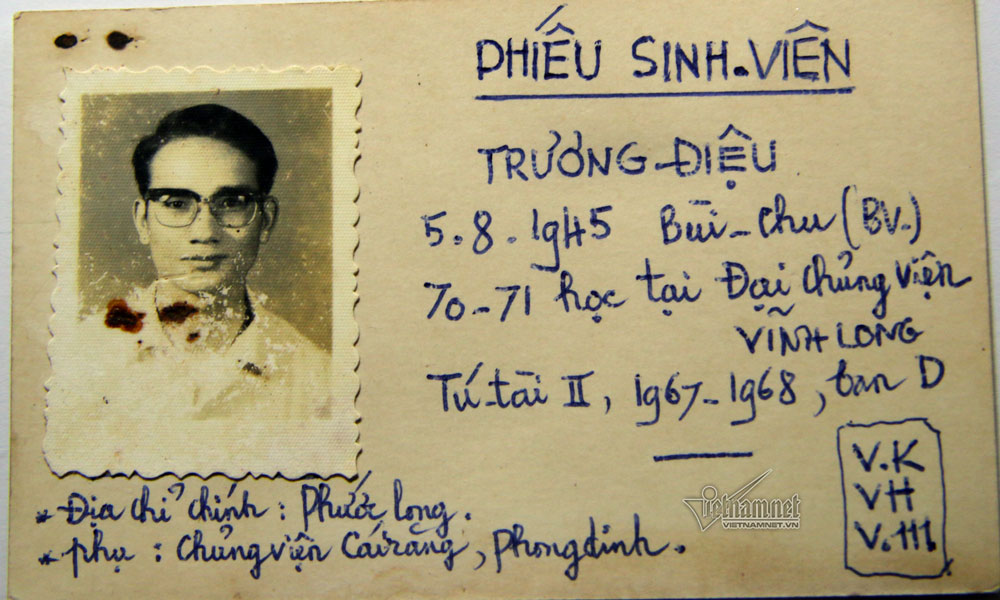 PHIẾU SINH.VIÊN
TRƯƠNG-ĐIỆU
5.8.1945 Bùi-chu (BV.)
70-71 học tại Đại chủng viện
VĨNH LONG
Tú-tài II, 1967-1968, ban D
V.K
VH
V.III
* Địa chỉ chính : Phước long.
* phụ : Chủng viện Cái răng, Phong dinh.
Vietnamnet
VIETNAMNET.VN